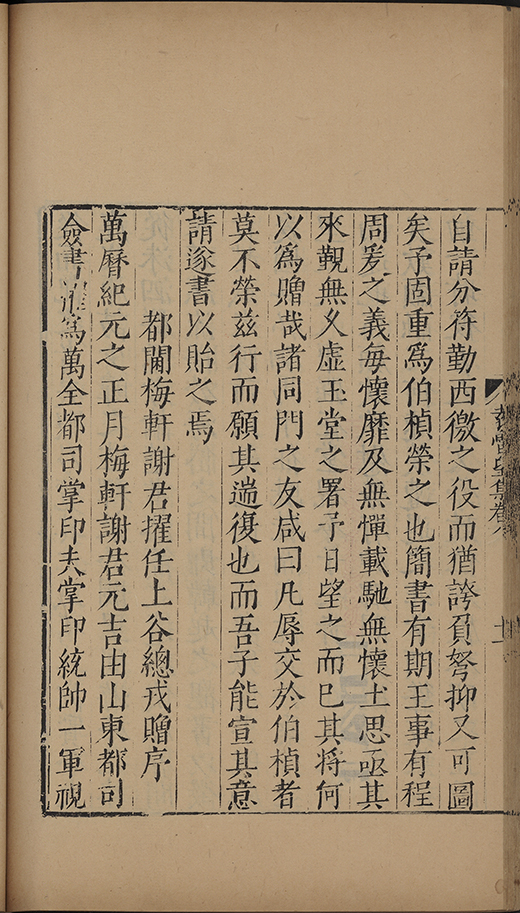 自請分符勤西徼之役而猶誇負弩抑又可圖
矣予固重爲伯楨榮之也簡書有期王事有程
周爰之義每懷靡及無憚載馳無懷土思亟其
來觀無乆虛玉堂之署予日望之而已其將何
以爲贈哉諸同門之友咸曰凡辱交於伯楨者
莫不榮兹行而願其遄復也而吾子能宣其意
請遂書以貽之焉
都閫梅軒謝君擢任上谷總戎贈序
萬曆紀元之正月梅軒謝君元吉由山東都司
僉書進爲萬全都司掌印夫掌印統帥一軍視
集卷
十一